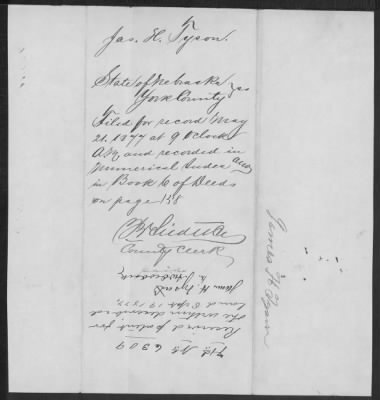 Jas. H. Tyson.
State of Nebraska } ss
York County
Filed for record May
21, 1877 at 9 O'Clock
A.M. and recorded in
Numerical Index and
in Book C of Deeds
on page 158
County Clerk
James H. Tyson
Received patent for
the within described
land Sept 19 1877
James H. Tyson